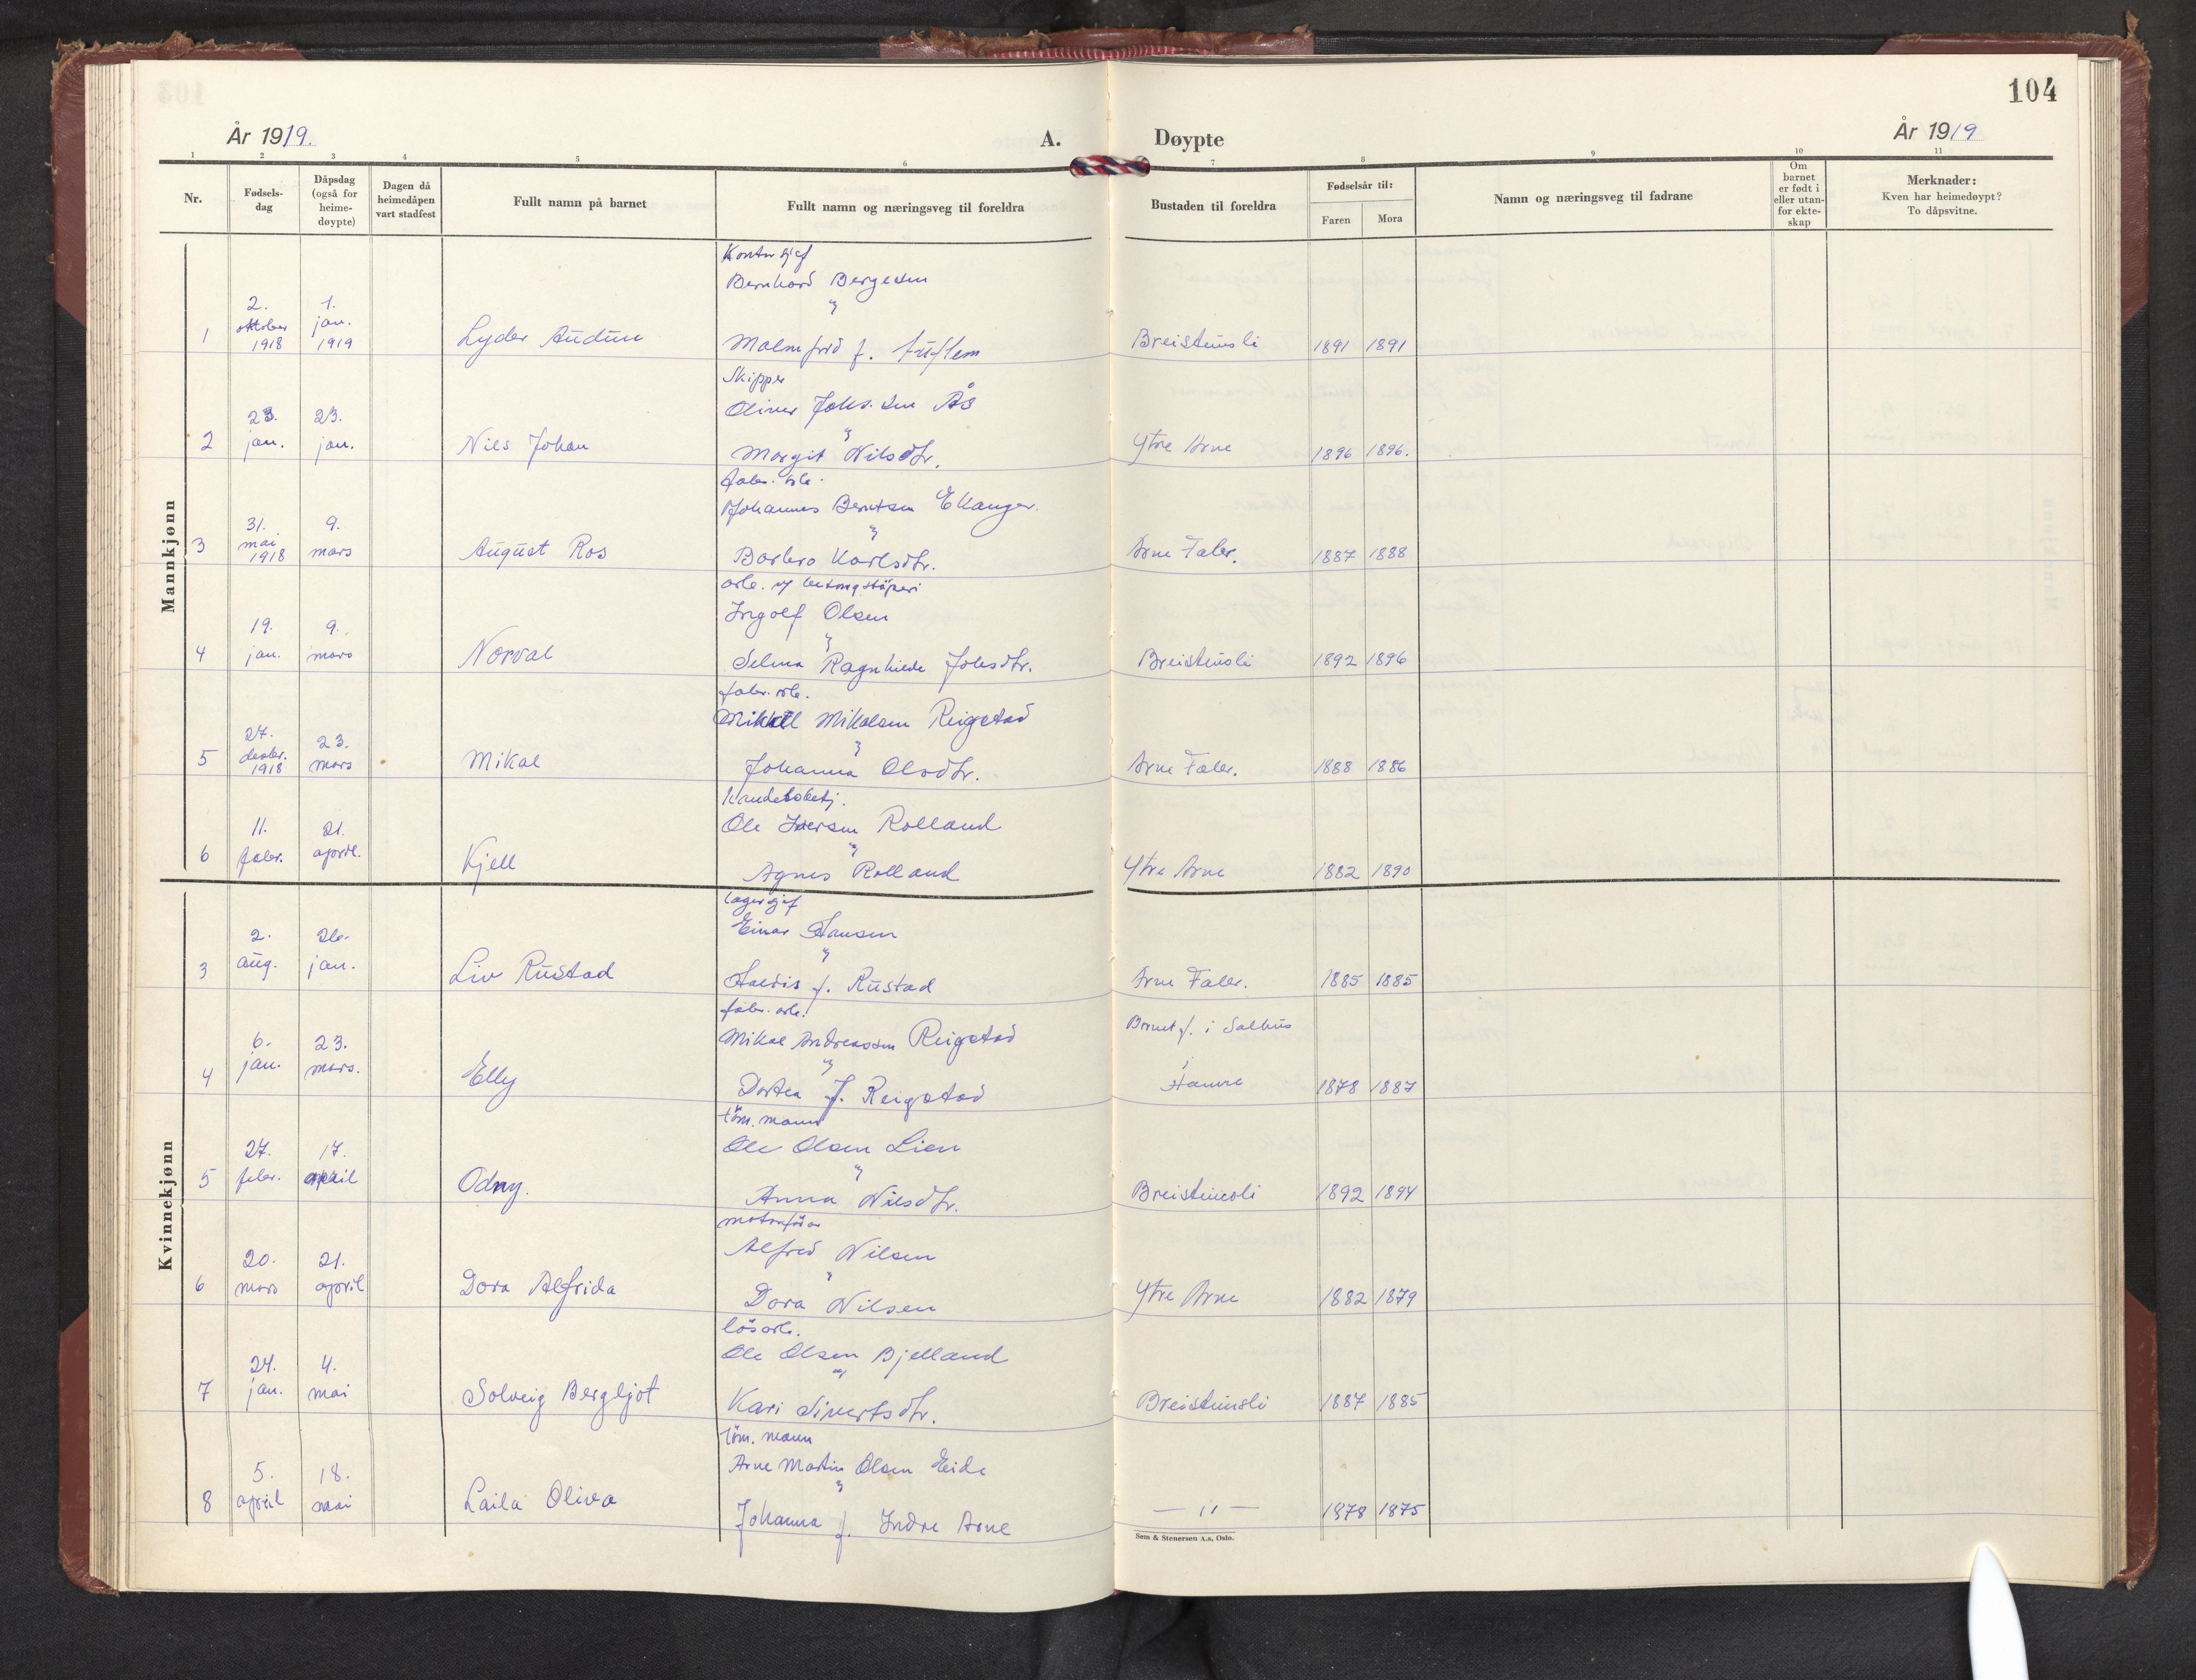 104
År 1919.
A. Døypte
År 1919
1 2 3 4 5 6 7 8 9 10 11
Nr.
Fødsels-
dag
Dåpsdag
(også for
heime-
døypte)
Dagen då
heimedåpen
vart stadfest
Fullt namn på barnet
Fullt namn og næringsveg til foreldra
Bustaden til foreldra
Fødselsår til:
Faren Mora
Namn og næringsveg til fadrane
Om
barnet
er født i
eller utan-
for ekte-
skap
Merknader:
Kven har heimedøypt?
To dåpsvitne.
Mannkjønn
Kontorsjef
Bernhard Bergesen
2. 1.
oktober jan.
1 1918 1919 Lyder Audun Malmfrid f. Breistunsli 1891 1891
Skipper
Oliver Johs.sen Ås
23. 23.
2 jan. jan. Nils Johan Margit Nilsdtr. Ytre Arne 1896 1896.
fabr. arb.
Johannes Berntsen Ekanger.
31. 9.
3 mai mars
1918 August Ros Barbro Karlsdtr. Arne Fabr. 1887 1888
arb. v/ betongstöperi
Ingolf Olsen
19. 9.
4 jan. mars Norval Selma Ragnhilde Johsdtr. Breistunsli 1892 1896
fabr. arb.
Mikkel Mikalsen Reigstad
27. 23.
5 desbr. mars
1918 Mikal Johanna Olsdtr. Arne Fabr. 1888 1886
handelsbetj.
Ole Iversen Rolland
11. 21.
6 febr. april. Kjell Agnes Rolland Ytre Arne 1882 1890
Kvinnekjønn
lagersjef
Einar Hansen
2. 26.
3 aug. jan. Liv Rustad Haldis f. Rustad Arne Fabr. 1885 1885
fabr. arb.
Mikal Andreassen Reigstad Barnet f. i Salhus
6. 23.
4 jan. mars. Elly Dortea f. Reigstad Hamre 1878 1887
töm. mann
Ole Olsen Lien
27. 17.
5 febr. april Odny. Anna Nilsdtr. Breistunsli 1892 1894
motorförar
Alfred Nilsen
20. 21.
6 mars april Dora Alfrida Dora Nilsen Ytre Arne 1882 1879
lösarb.
Ole Olsen Bjelland
24. 4.
7 jan. mai Solveig Bergljot Kari Sivertsdtr. Breistunsli 1887 1885
töm. mann
Arne Martin Olsen Eide
5. 18.
8 april mai Laila Oliva Johanna f. Indre Arne — " — 1878 1875
Sem & Stenersen A.s, Oslo.